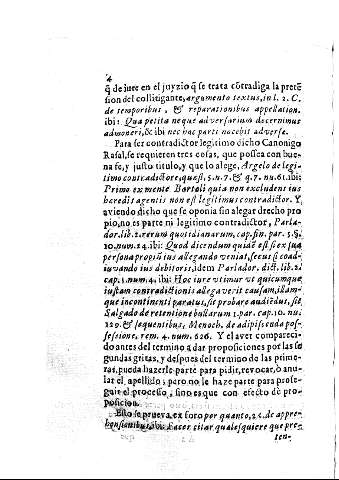 4
q̃ de iure en el juyzio q̃ se trata cõtradiga la pretẽ
sion del collitigante, argumento textus, in l. 2. C.
de temporibus, & reparationibus appellation.
ibi: Qua petita neque adversarium decernimus
admoneri, & ibi nec hac parti nocebit adversæ.
Para ser contradictor legitimo dicho Canonigo
Rasal, se requieren tres cosas, que possea con bue
na fe, y justo titulo, y que lo alege, Argelo de legi
timo contradictore, quæst. 5. n. 7. & q. 7. nu. 61. ibi:
Primo ex mente Bartoli quia non excludens ius
heredit agentis non est legitimus contradictor. Y
aviendo dicho que se oponia sin alegar drecho pro
pio, no es parte ni legitimo contradictor, Parla
dor. lib. 2. rerum quotidianarum, cap. fin. par. 5. §.
10. num. 24. ibi: Quod dicendum quidẽ est si ex sua
persona propriũ ius allegando veniat, secus si coad-
iuvando ius debitoris, idem Parlador. dict. lib. 2.
cap. 1. num. 4. ibi: Hoc iure vtimur vt quicumque
iustam contradictionis allegaverit causam, illam-
que incontinenti paratus, sit probare audiẽdus, sit
Salgado de retentione bullarum 1. par. cap. 10. nu.
229. & sequentibus, Menoch. de adipiscenda pos-
sessione, rem. 4. num. 626. Y el aver compareci
do antes del termino a dar proposiciones por las se
gundas gritas, y despues del termino de las prime-
ras, pueda hazerle parte para pidir, revocar, o anu-
lar el apellido; pero no le haze parte para prose-
guir el processo, sino es que con efecto de pro-
posicion.
Esto se prueva ex foro por quanto, 24. de appre-
hensionibus, ibi: Facer citar qualesquiere que pre
ten-